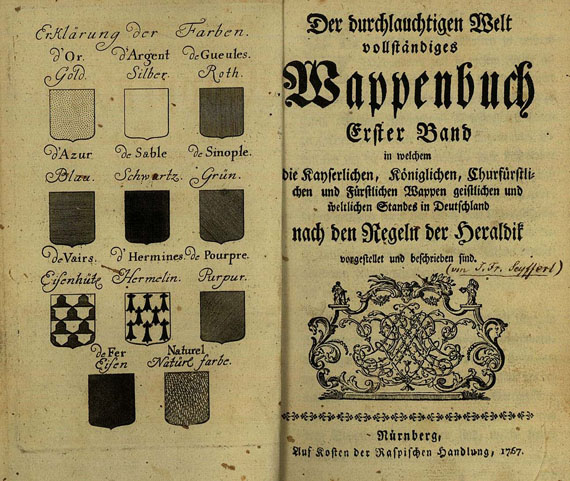 Erklärung der Farben.
d'Or. d'Argent de Gueules.
Gold. Silber. Roth.
d'Azur de Sable de Sinople.
Blau. Schwartz. Grün.
de Vairs. d'Hermines. de Pourpre.
Eisenhüte Hermelin. Purpur.
de Fer Naturel
Eisen Natürl farbe.
Der durchlauchtigen Welt
vollständiges
Wappenbuch
Erster Band
in welchem
die Kayserlichen, Königlichen, Churfürstli-
chen und Fürstlichen Wappen geistlichen und
weltlichen Standes in Deutschland
nach den Regeln der Heraldik
vorgestellet und beschrieben sind.
(von J. Fr. Seyffert)
Nürnberg,
Auf Kosten der Raspischen Handlung, 1767.